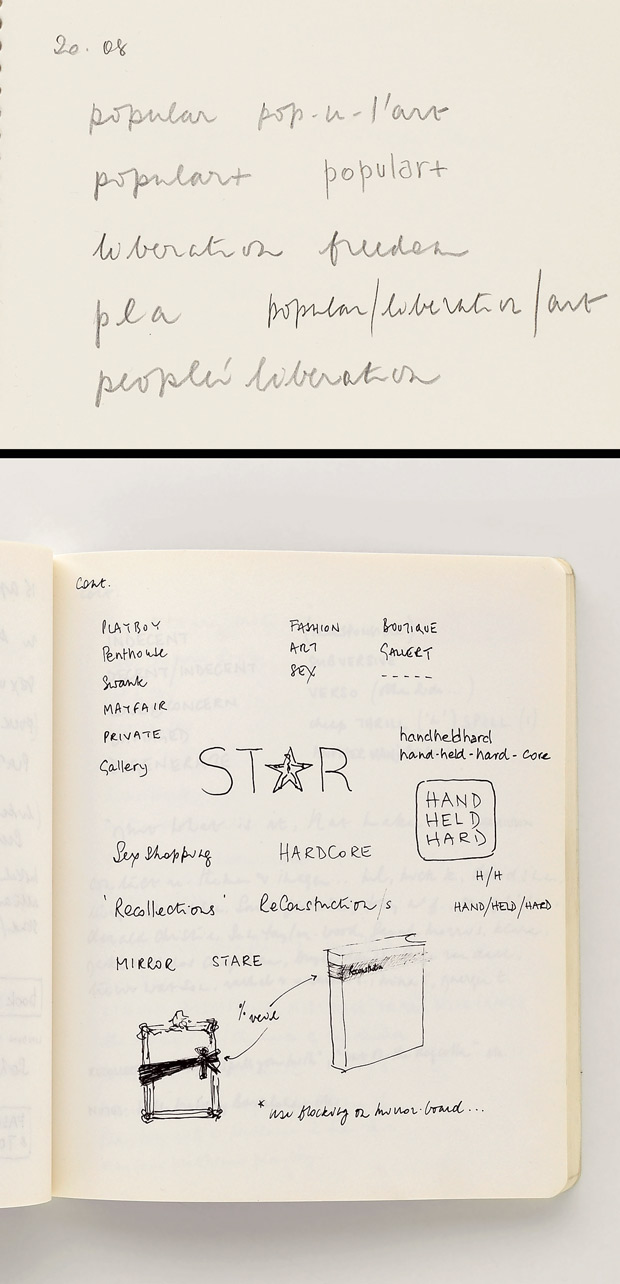 20.08
popular pop-u-l'art
popular+ popular+
liberation freedom
pla popular/liberation/art
people's liberation
cont.
PLAYBOY FASHION BOUTIQUE
Penthouse ART GALLERY
Swank SEX -----
MAYFAIR
PRIVATE handheldhard
Gallery hand-held-hard-core
ST★R
HAND
HELD
HARD
Sex Shopping HARDCORE
H/H
'Recollections' ReConstruction/s HAND/HELD/HARD
MIRROR STARE
* use blocking on mirror-board...